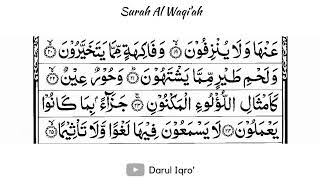 Surah Al Waqi'ah
عَنْهَا وَلَا يُنْزِفُوْنَ ۙ﴿۱۹﴾ وَفَاكِهَةٍ مِّمَّا يَتَخَيَّرُوْنَ ۙ﴿۲۰﴾
وَلَحْمِ طَيْرٍ مِّمَّا يَشْتَهُوْنَ ؕ﴿۲۱﴾ وَحُوْرٌ عِيْنٌ ۙ﴿۲۲﴾
كَاَمْثَالِ اللُّؤْلُؤِ الْمَكْنُوْنِ ۚ﴿۲۳﴾ جَزَآءًۢ بِمَا كَانُوْا
يَعْمَلُوْنَ ﴿۲۴﴾ لَا يَسْمَعُوْنَ فِيْهَا لَغْوًا وَّلَا تَاْثِيْمًا ۙ﴿۲۵﴾
Darul Iqro'